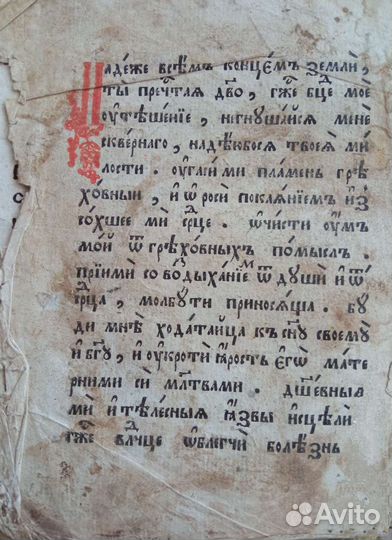 Надеже всѣмъ концемъ земли,
ты пречтая дво, гже бце мое
ѹтѣшенїе, негнушайся мене
сквернаго, надѣюбося твоея ми
лости. ѹгаси ми пламень грѣ
ховныи, и ѡроси покаянїемъ из
сохшее ми срце. ѡчисти ѹмъ
мой ѿ грѣховныхъ помыслъ.
прїими со воздыханїемъ ѿ души и ѿ
срца, молбу ти приносяща. бу
ди мнѣ ходатаица къ сну своему
и бгу, и ѹкроти ярость его мате
рними си млтвами. дшевныя
ми и тѣлесныя язвы исцели
гже влдчце ѡблегчи болѣзнь
Avito